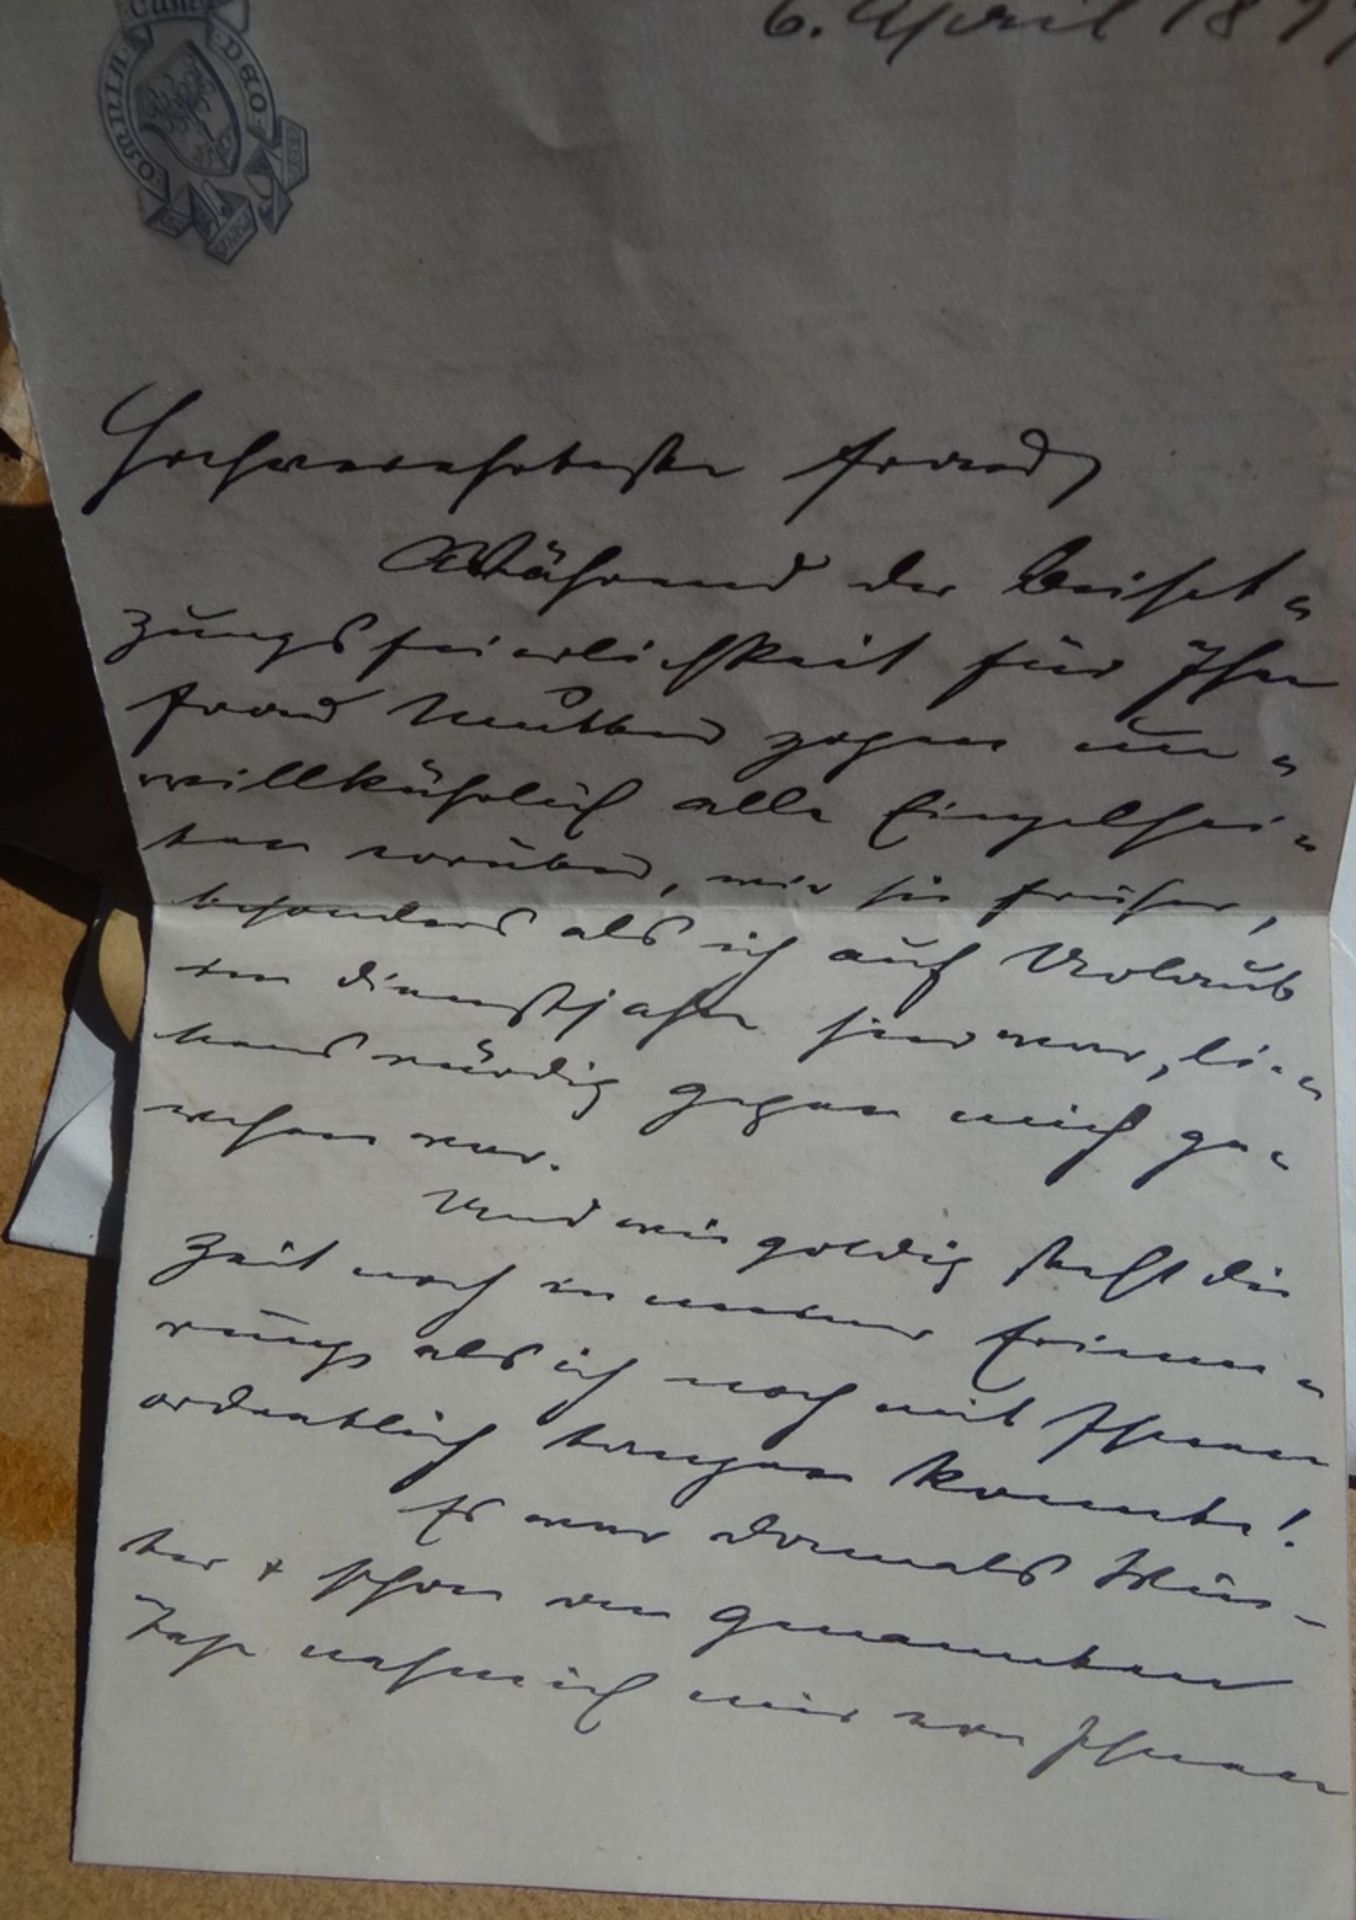 OMNIA CUM DEO
6. April 189
Hochverehrteste Frau,
Während der Beiset-
zungsfeierlichkeit für Ihre
Frau Mutter zogen un-
willkührlich alle Einzelhei-
ten vorüber, wie sie früher,
besonders als ich auf Urlaub
im Dienstjahre hier war, lie-
benswürdig gegen mich ge-
wesen war.
Und wie goldig steht die
Zeit noch in meiner Erinne-
rung, als ich noch mit Ihnen
ordentlich tanzen konnte!
Es war damals Win-
ter + schon am genannten
Tage nahm ich mir von Ihnen